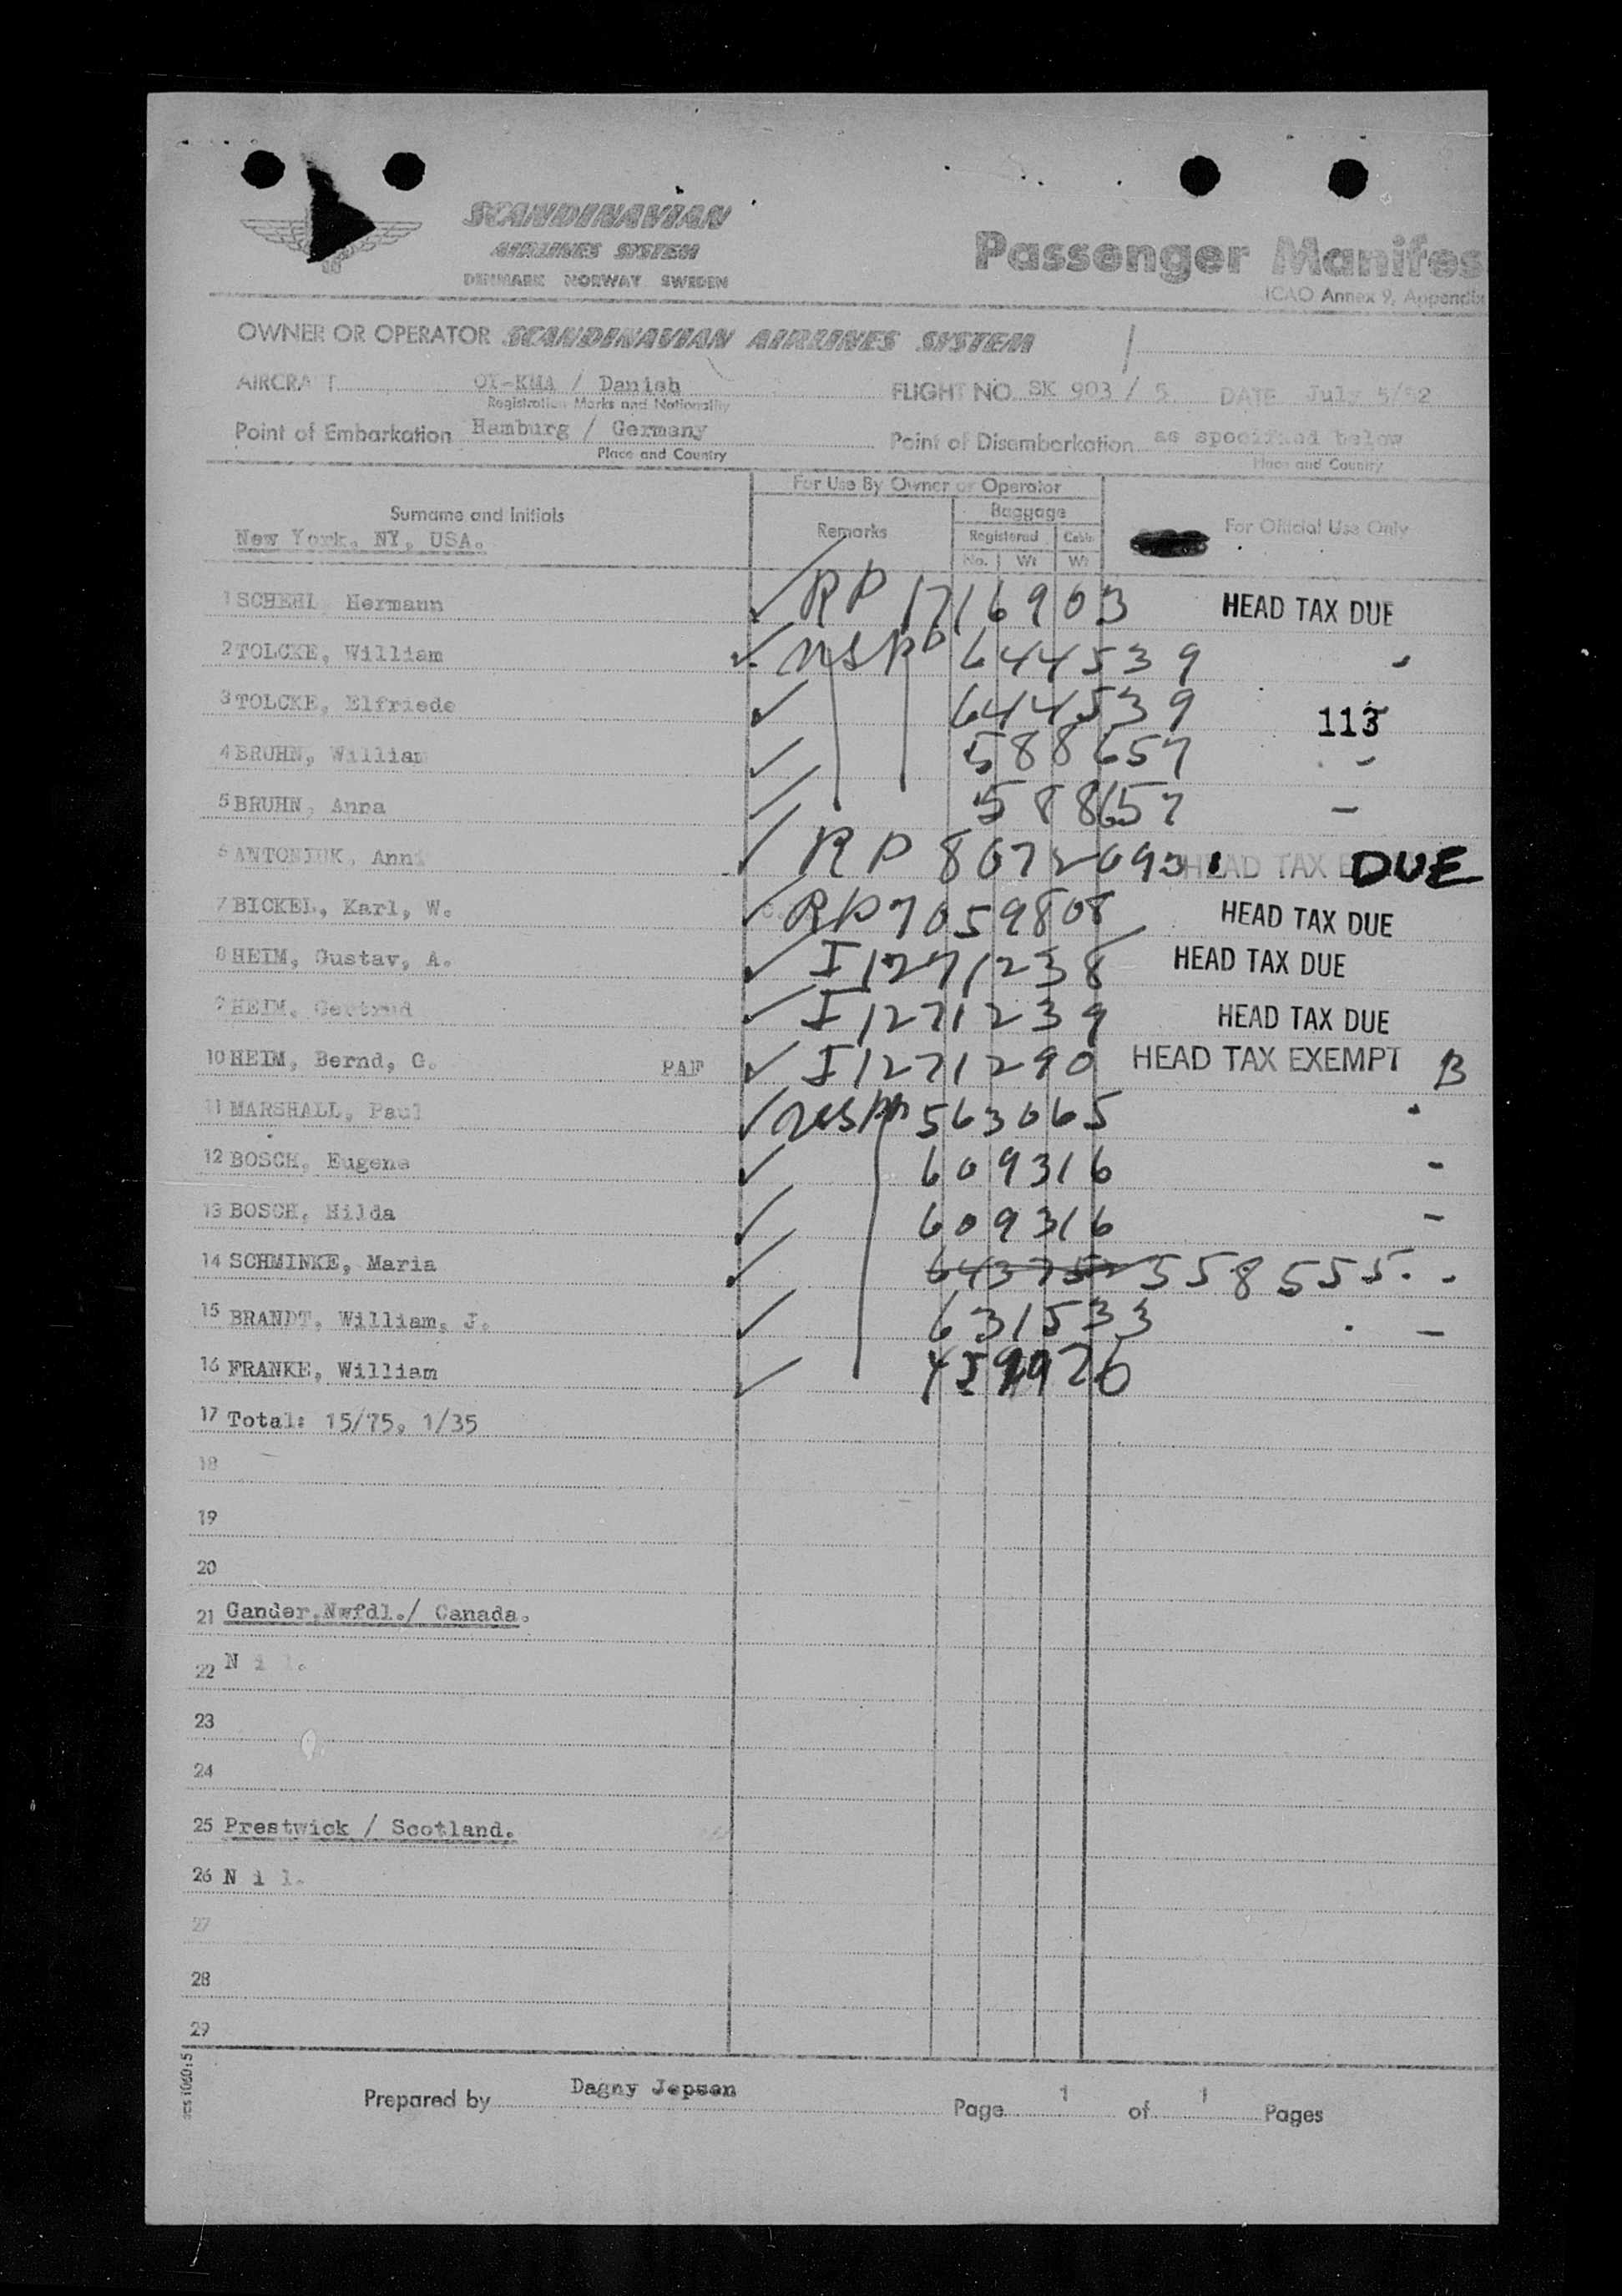 SCANDINAVIAN
AIRLINES SYSTEM
DENMARK NORWAY SWEDEN
Passenger Manifes
ICAO Annex 9, Appendix
OWNER OR OPERATOR SCANDINAVIAN AIRLINES SYSTEM
AIRCRAFT OY-KMA / Danish FLIGHT NO. SK 903 / 5 DATE July 5/52
Registration Marks and Nationality
Point of Embarkation Hamburg / Germany Point of Disembarkation as specified below
Place and Country Place and Country
For Use By Owner or Operator
Surname and Initials Remarks Baggage For Official Use Only
New York. NY, USA. Registered Cabin
No. Wt Wt
1 SCHEHL Hermann RP 1716903 HEAD TAX DUE
2 TOLCKE, William USPP 644539
3 TOLCKE, Elfriede 644539 113
4 BRUHN, William 588657 -
5 BRUHN, Anna 588657 -
6 ANTONIUK, Anni RP HEAD TAX DUE
7 BICKEL, Karl, W. RP 7059808 HEAD TAX DUE
8 HEIM, Gustav, A. I 1271238 HEAD TAX DUE
9 HEIM, Gertrud I 1271239 HEAD TAX DUE
10 HEIM, Bernd, G. PAF I 1271290 HEAD TAX EXEMPT B
11 MARSHALL, Paul USPP 563065
12 BOSCH, Eugene 609316 -
13 BOSCH, Hilda 609316 -
14 SCHMINKE, Maria 643752 558555 -
15 BRANDT, William, J. 631533 -
16 FRANKE, William
17 Total: 15/75, 1/35
18
19
20
21 Gander,Nwfdl./ Canada.
22 N i l.
23
24
25 Prestwick / Scotland.
26 N i l.
27
28
29
Prepared by Dagny Jepsen Page 1 of 1 Pages